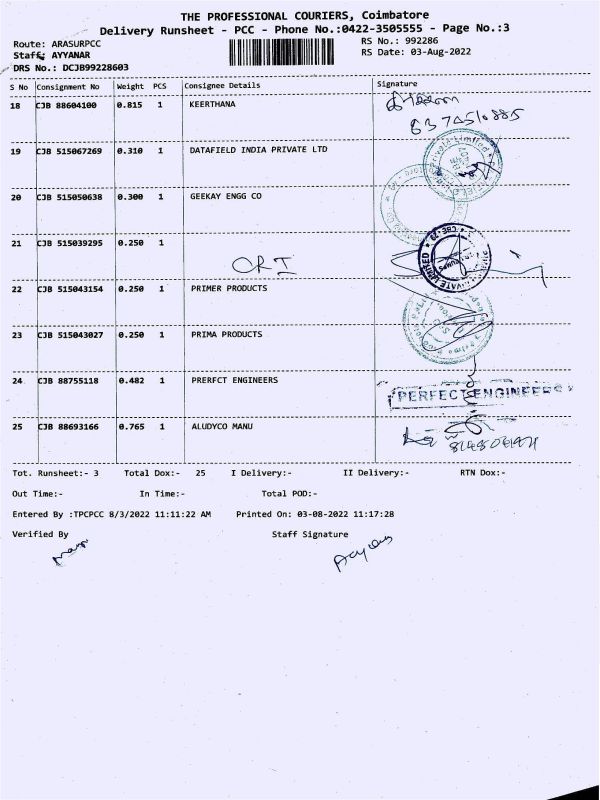 THE PROFESSIONAL COURIERS, Coimbatore
Delivery Runsheet - PCC - Phone No.:0422-3505555 - Page No.:3
Route: ARASURPCC
RS No.: 992286
Staff: AYYANAR
RS Date: 03-Aug-2022
DRS No.: DCJB99228603
S No Consignment No Weight PCS Consignee Details Signature
18 CJB 88604100 0.815 1 KEERTHANA
19 CJB 515067269 0.310 1 DATAFIELD INDIA PRIVATE LTD
20 CJB 515050638 0.300 1 GEEKAY ENGG CO
21 CJB 515039295 0.250 1
ORI
22 CJB 515043154 0.250 1 PRIMER PRODUCTS
23 CJB 515043027 0.250 1 PRIMA PRODUCTS
24 CJB 88755118 0.482 1 PRERFCT ENGINEERS
PERFECT ENGINEERS
25 CJB 88693166 0.765 1 ALUDYCO MANU
Tot. Runsheet:- 3 Total Dox:- 25 I Delivery:- II Delivery:- RTN Dox:-
Out Time:- In Time:- Total POD:-
Entered By :TPCPCC 8/3/2022 11:11:22 AM Printed On: 03-08-2022 11:17:28
Verified By Staff Signature